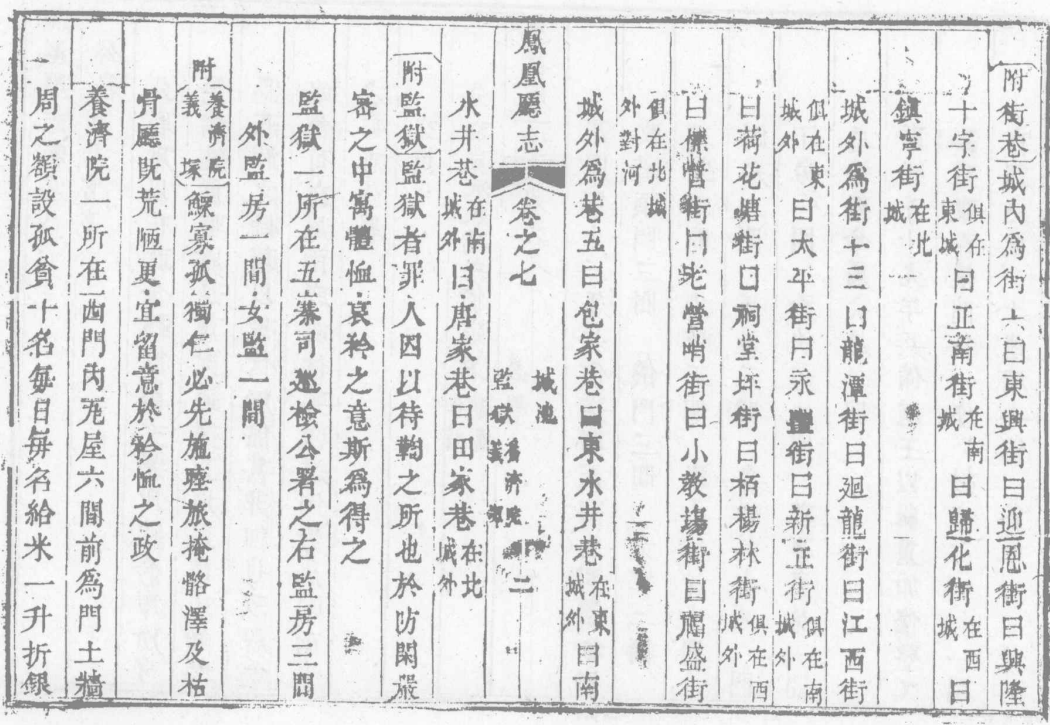 附街巷城內為街六曰東興街曰迎恩街曰興隆
十字街俱在東城曰正南街在南城曰歸化街在西城曰
鎮寧街在北城
城外為街十三曰龍潭街曰迴龍街曰江西街
俱在東城外曰太平街曰永豐街曰新正街俱在南城外
曰荷花塘街曰祠堂坪街曰栢楊林街俱在西城外
曰標營街曰老營哨街曰小教場街曰盛街
俱在北城外對河
城外為巷五曰包家巷曰東水井巷在東城外曰南
鳳凰廳志 卷之七 城池 監獄 養濟院 義塚 二
水井巷在南城外曰唐家巷曰田家巷在北城外
附監獄監獄者罪人囚以待鞫之所也於防閑嚴
密之中寓體恤哀矜之意斯為得之
監獄一所在五寨司廵檢公署之右監房三間
外監房一間女監一間
附養濟院義塚鰥寡孤獨仁必先施瘞旅掩骼澤及枯
骨廳旣荒陋更宜留意於矜恤之政
養濟院一所在西門內瓦屋六間前為門土牆
周之額設孤貧十名每日每名給米一升折銀